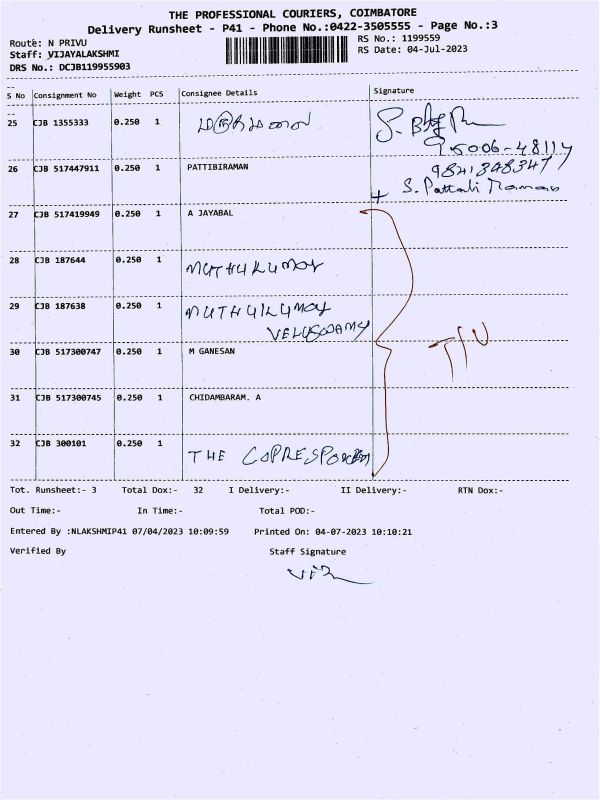 THE PROFESSIONAL COURIERS, COIMBATORE
Delivery Runsheet - P41 - Phone No.:0422-3505555 - Page No.:3
Route: N PRIVU RS No.: 1199559
Staff: VIJAYALAKSHMI RS Date: 04-Jul-2023
DRS No.: DCJB119955903
S No Consignment No Weight PCS Consignee Details Signature
25 CJB 1355333 0.250 1 மருதமலை S.
95006-48114
26 CJB 517447911 0.250 1 PATTIBIRAMAN 9841348347
S. Pattabi Raman
27 CJB 517419949 0.250 1 A JAYABAL
28 CJB 187644 0.250 1 MUTHUKUMAR
29 CJB 187638 0.250 1 MUTHUKUMAR
VELUSWAMY
30 CJB 517300747 0.250 1 M GANESAN
31 CJB 517300745 0.250 1 CHIDAMBARAM. A
32 CJB 300101 0.250 1 THE
Tot. Runsheet:- 3 Total Dox:- 32 I Delivery:- II Delivery:- RTN Dox:-
Out Time:- In Time:- Total POD:-
Entered By :NLAKSHMIP41 07/04/2023 10:09:59 Printed On: 04-07-2023 10:10:21
Verified By Staff Signature